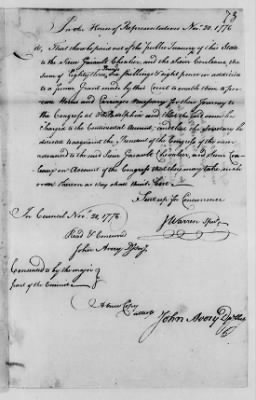 78
In the House of Representatives Nov. 20, 1776
that there be paid out of the public Treasury of this State
to the Sieur Chevalier, and the Sieur
the sum of Eighty three six shillings & eight pence in addition
to a former Grant made by this Court to enable them to
Horses and Carriages necessary for their Journey to
the Congress at Philadelphia and that the said sum be
charged to the Continental Account, and that the Secretary be
directed to acquaint the President of the Congress of the sum
advanced to the said Sieur Chevalier, and Sieur
on Account of the Congress that they may take such
order thereon as they shall think
Sent up for Concurrence
J Warren Spkr
In Council Nov. 20, 1776
Read & Concurred
John Avery Dy Secy
Consented to by the major
part of the Council
A true Copy
attest
John Avery Dy Secy